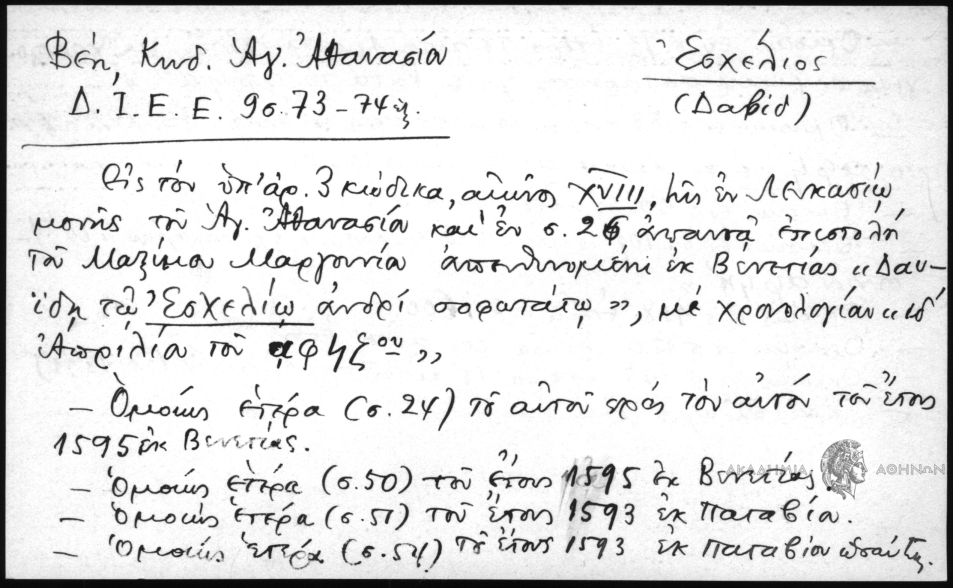 Βέη, Κωδ. Ἁγ. Ἀθανασίου
Ἐσχέλιος
Δ. Ι. Ε. Ε. 9 σ. 73-74 ἑξ.
(Δαβίδ)
Εἰς τὸν ὑπ' ἀρ. 3 κώδικα, αἰῶνος XVIII, τῆς ἐν Λευκασίῳ
μονῆς τοῦ Ἁγ. Ἀθανασίου καὶ ἐν σ. 26 ἀπαντᾷ ἐπιστολὴ
τοῦ Μαξίμου Μαργουνίου ἀπευθυνομένη ἐκ Βενετίας «Δαυ-
ΐδη τῷ Ἐσχελίῳ ἀνδρὶ σοφωτάτῳ», μὲ χρονολογίαν «ιδ'
Ἀπριλίου τοῦ αφϟξου»
— Ὁμοίως ἑτέρα (σ. 24) τοῦ αὐτοῦ πρὸς τὸν αὐτὸν τοῦ ἔτους
1595 ἐκ Βενετίας.
— Ὁμοίως ἑτέρα (σ. 50) τοῦ ἔτους 1595 ἐκ Βενετίας.
— Ὁμοίως ἑτέρα (σ. 51) τοῦ ἔτους 1593 ἐκ Παταβίου.
— Ὁμοίως ἑτέρα (σ. 54) τοῦ ἔτους 1593 ἐκ Παταβίου ὡσαύτως.
ΑΚΑΔΗΜΙΑ ΑΘΗΝΩΝ